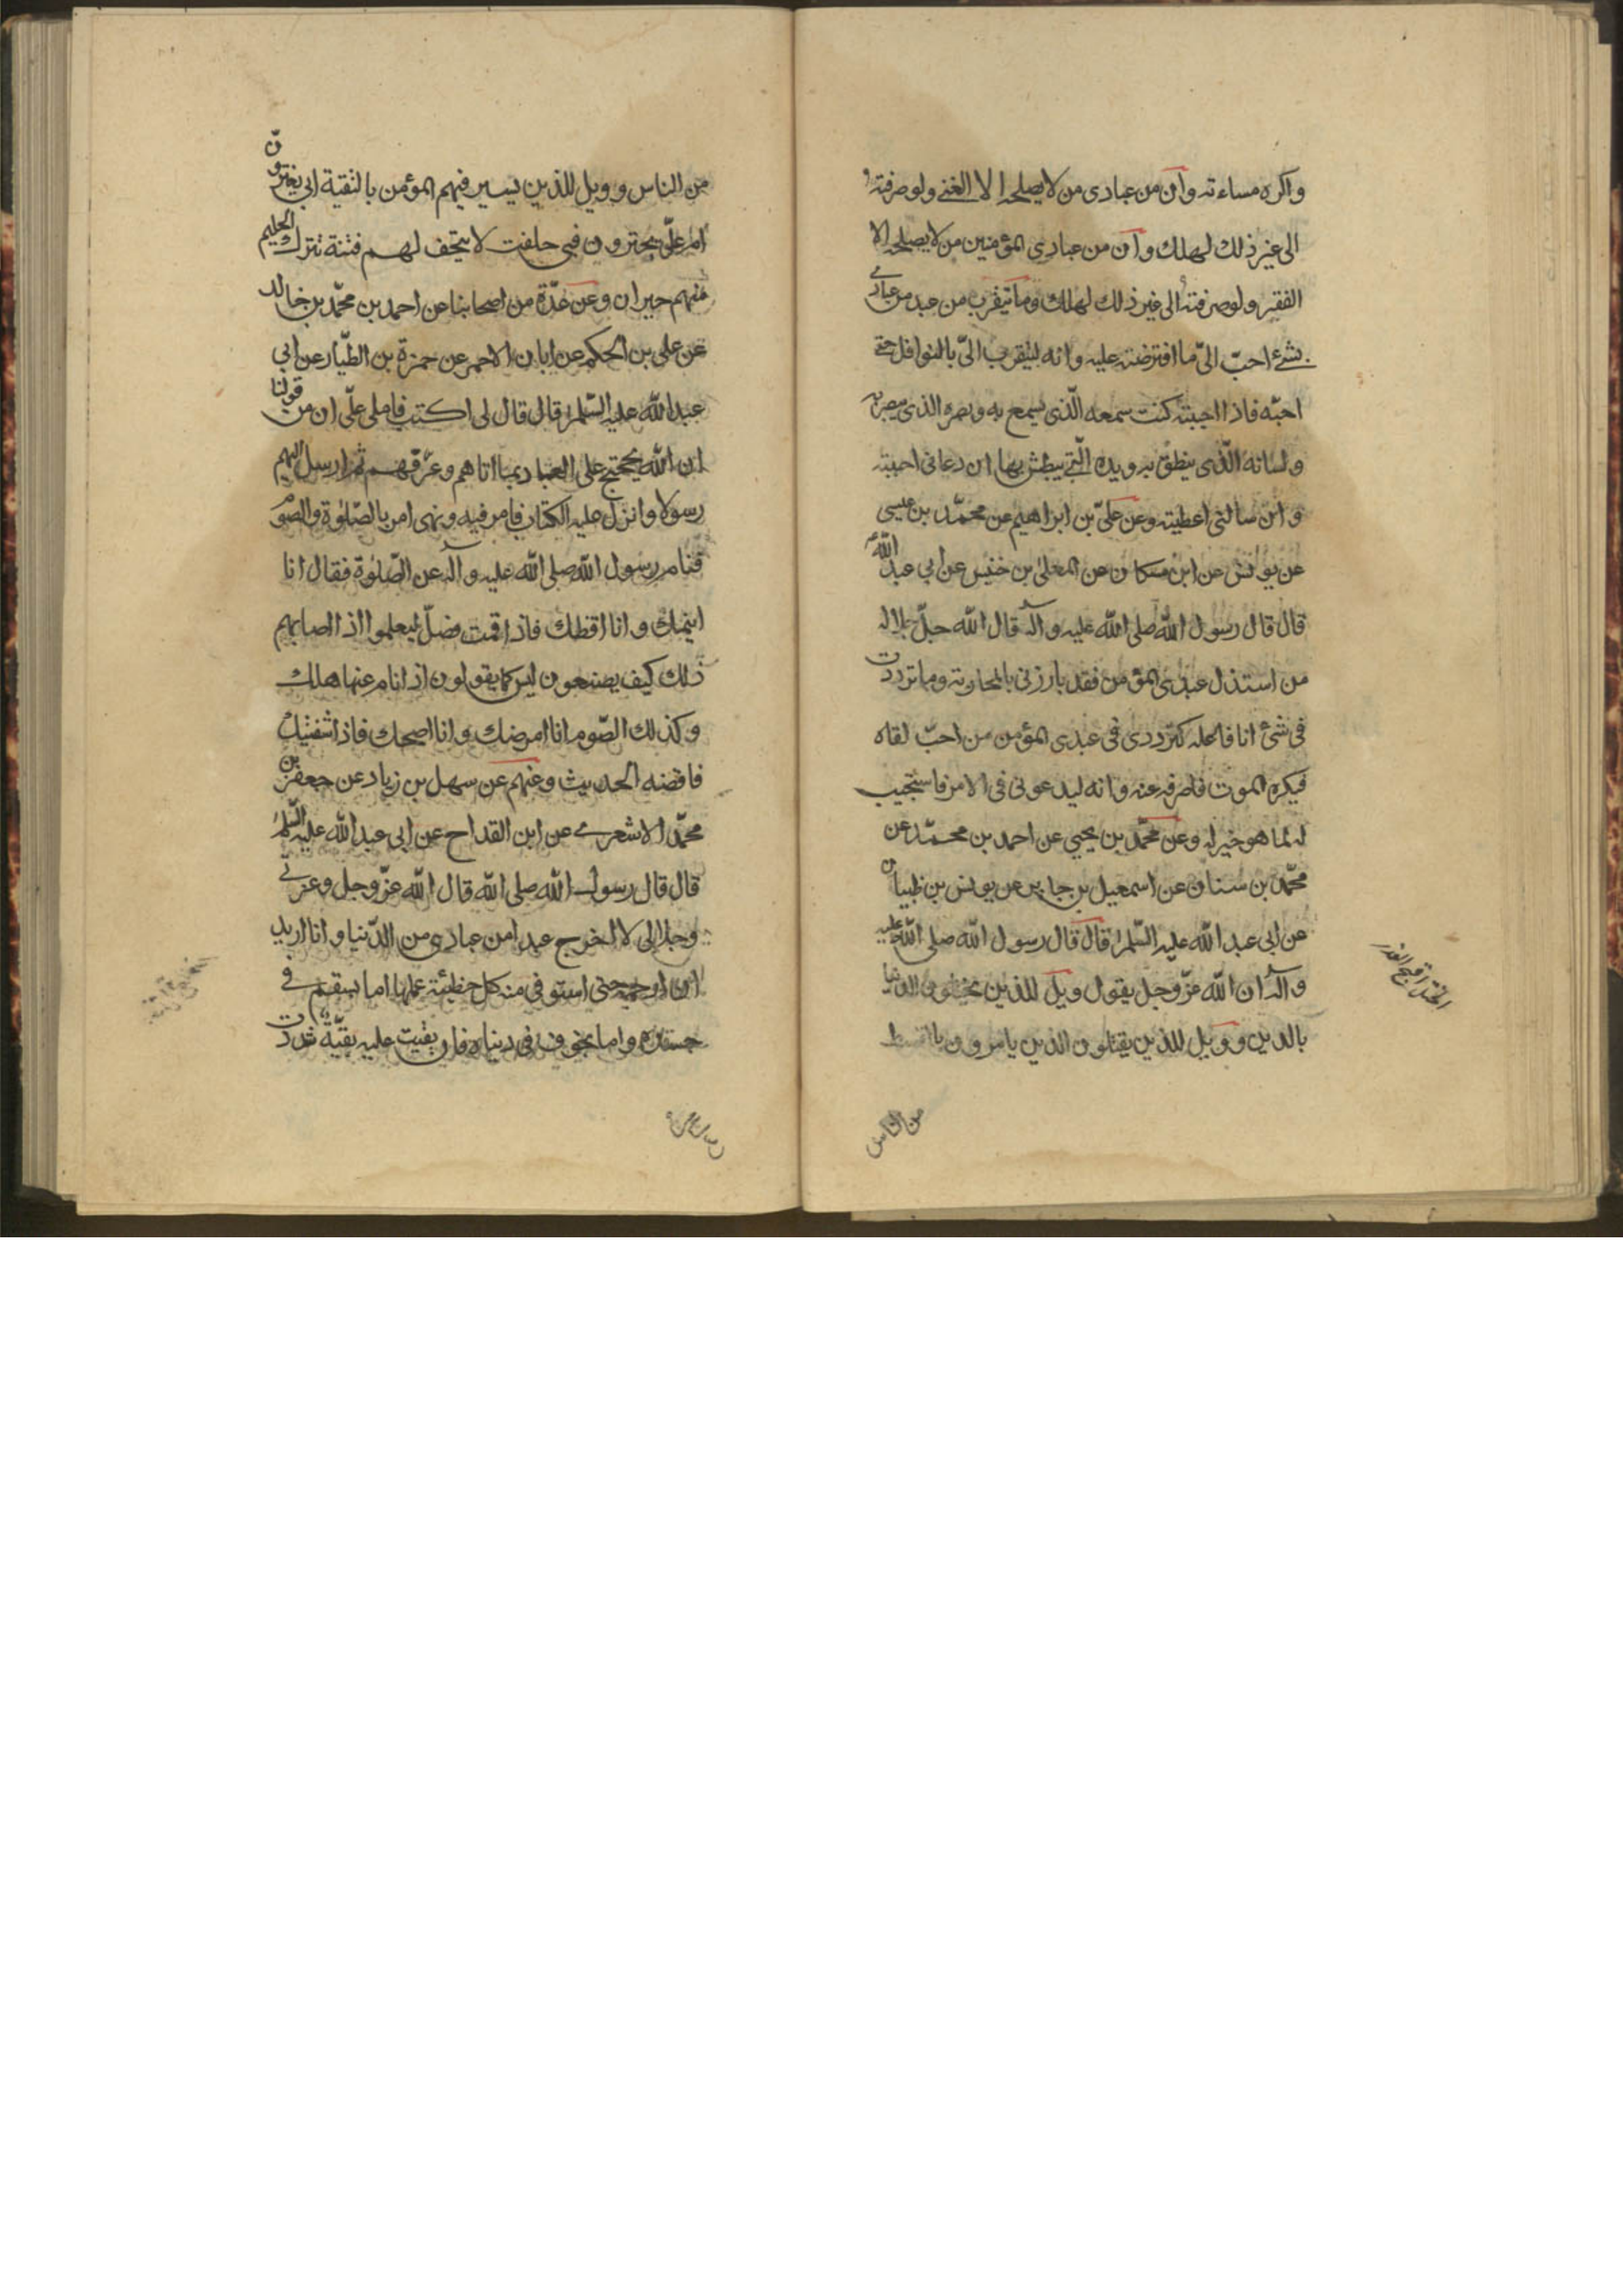 واكره مساءته وان من عبادى من لا يصلحه الا الغنى ولو صرفته
الى غير ذلك لهلك وان من عبادى المؤمنين من لا يصلحه الا
الفقير ولو صرفته الى غير ذلك لهلك وما يتقرب من عبد من عبادى
بشئ احبّ الىّ ما افترضته عليه وانه ليتقرب الىّ بالنوافل حتى
احبّه فاذا احببته كنت سمعه الّذى يسمع به وبصره الذى يبصر به
ولسانه الّذى ينطق به ويده الّتى يبطش بها ان دعانى اجبته
وان سألنى اعطيته وعن علىّ بن ابراهيم عن محمّد بن عيسى
عن يونس عن ابن مسكان عن المعلى بن خنيس عن ابى عبد اللّه
قال قال رسول اللّه صلى اللّه عليه وآله قال اللّه جلّ جلاله
من استذل عبدى المؤمن فقد بارزنى بالمحاربة وما ترددت
فى شئ انا فاعله كتردّدى فى عبدى المؤمن من احبّ لقاه
فيكره الموت فاصرفه عنه وانه ليدعونى فى الامر فاستجيب
له لما هو خير له وعن محمّد بن يحيى عن احمد بن محمّد عن
محمّد بن سنان عن اسمعيل بن جابر عن يونس بن ظبيان
عن ابى عبد اللّه عليه السّلم قال قال رسول اللّه صلى اللّه عليه
وآله ان اللّه عزّ وجل يقول ويل للذين يختلون الدنيا
بالدين وويل للذين يقتلون الذين يامرون بالقسط
من الناس
من الناس وويل للذين يسير فيهم المؤمن بالتقية ابى يغترون
ام علىّ يجترون فبى حلفت لا تيحف لهم فتنة تترك الحليم
منهم حيران وعن عدّة من اصحابنا عن احمد بن محمّد بن خالد
عن على بن الحكم عن ابان الاحمر عن حمزة بن الطّيار عن ابى
عبد اللّه عليه السّلم قال قال لى اكتب فاملى علّى ان من قولنا
ان اللّه يحتج على العباد بما اتاهم وعرّفهم ثم ارسل اليهم
رسولا وانزل عليه الكتاب فامر فيه ونهى امر بالصّلوة والصوم
فنام رسول اللّه صلى اللّه عليه وآله عن الصّلوة فقال انا
انيمك وانا اوقظك فاذا قمت فصلّ ليعلموا اذا اصابهم
ذلك كيف يصنعون ليس كما يقولون اذا نام عنها هلك
وكذلك الصّوم انا امرضك وانا اصحك فاذا شفيتك
فاقضه الحديث وعنهم عن سهل بن زياد عن جعفر بن
محمّد الاشعرى عن ابن القداح عن ابى عبد اللّه عليه السّلم
قال قال رسول اللّه صلى اللّه قال اللّه عزّ وجل وعزتى
وجلالى لا اخرج عبدا من عبادى من الدّنيا وانا اريد
ان ارحمه حتى استوفى منه كل خطيئة عملها اما بسقم فى
جسده واما بخوف فى دنياه فان بقيت عليه بقيّة شددت